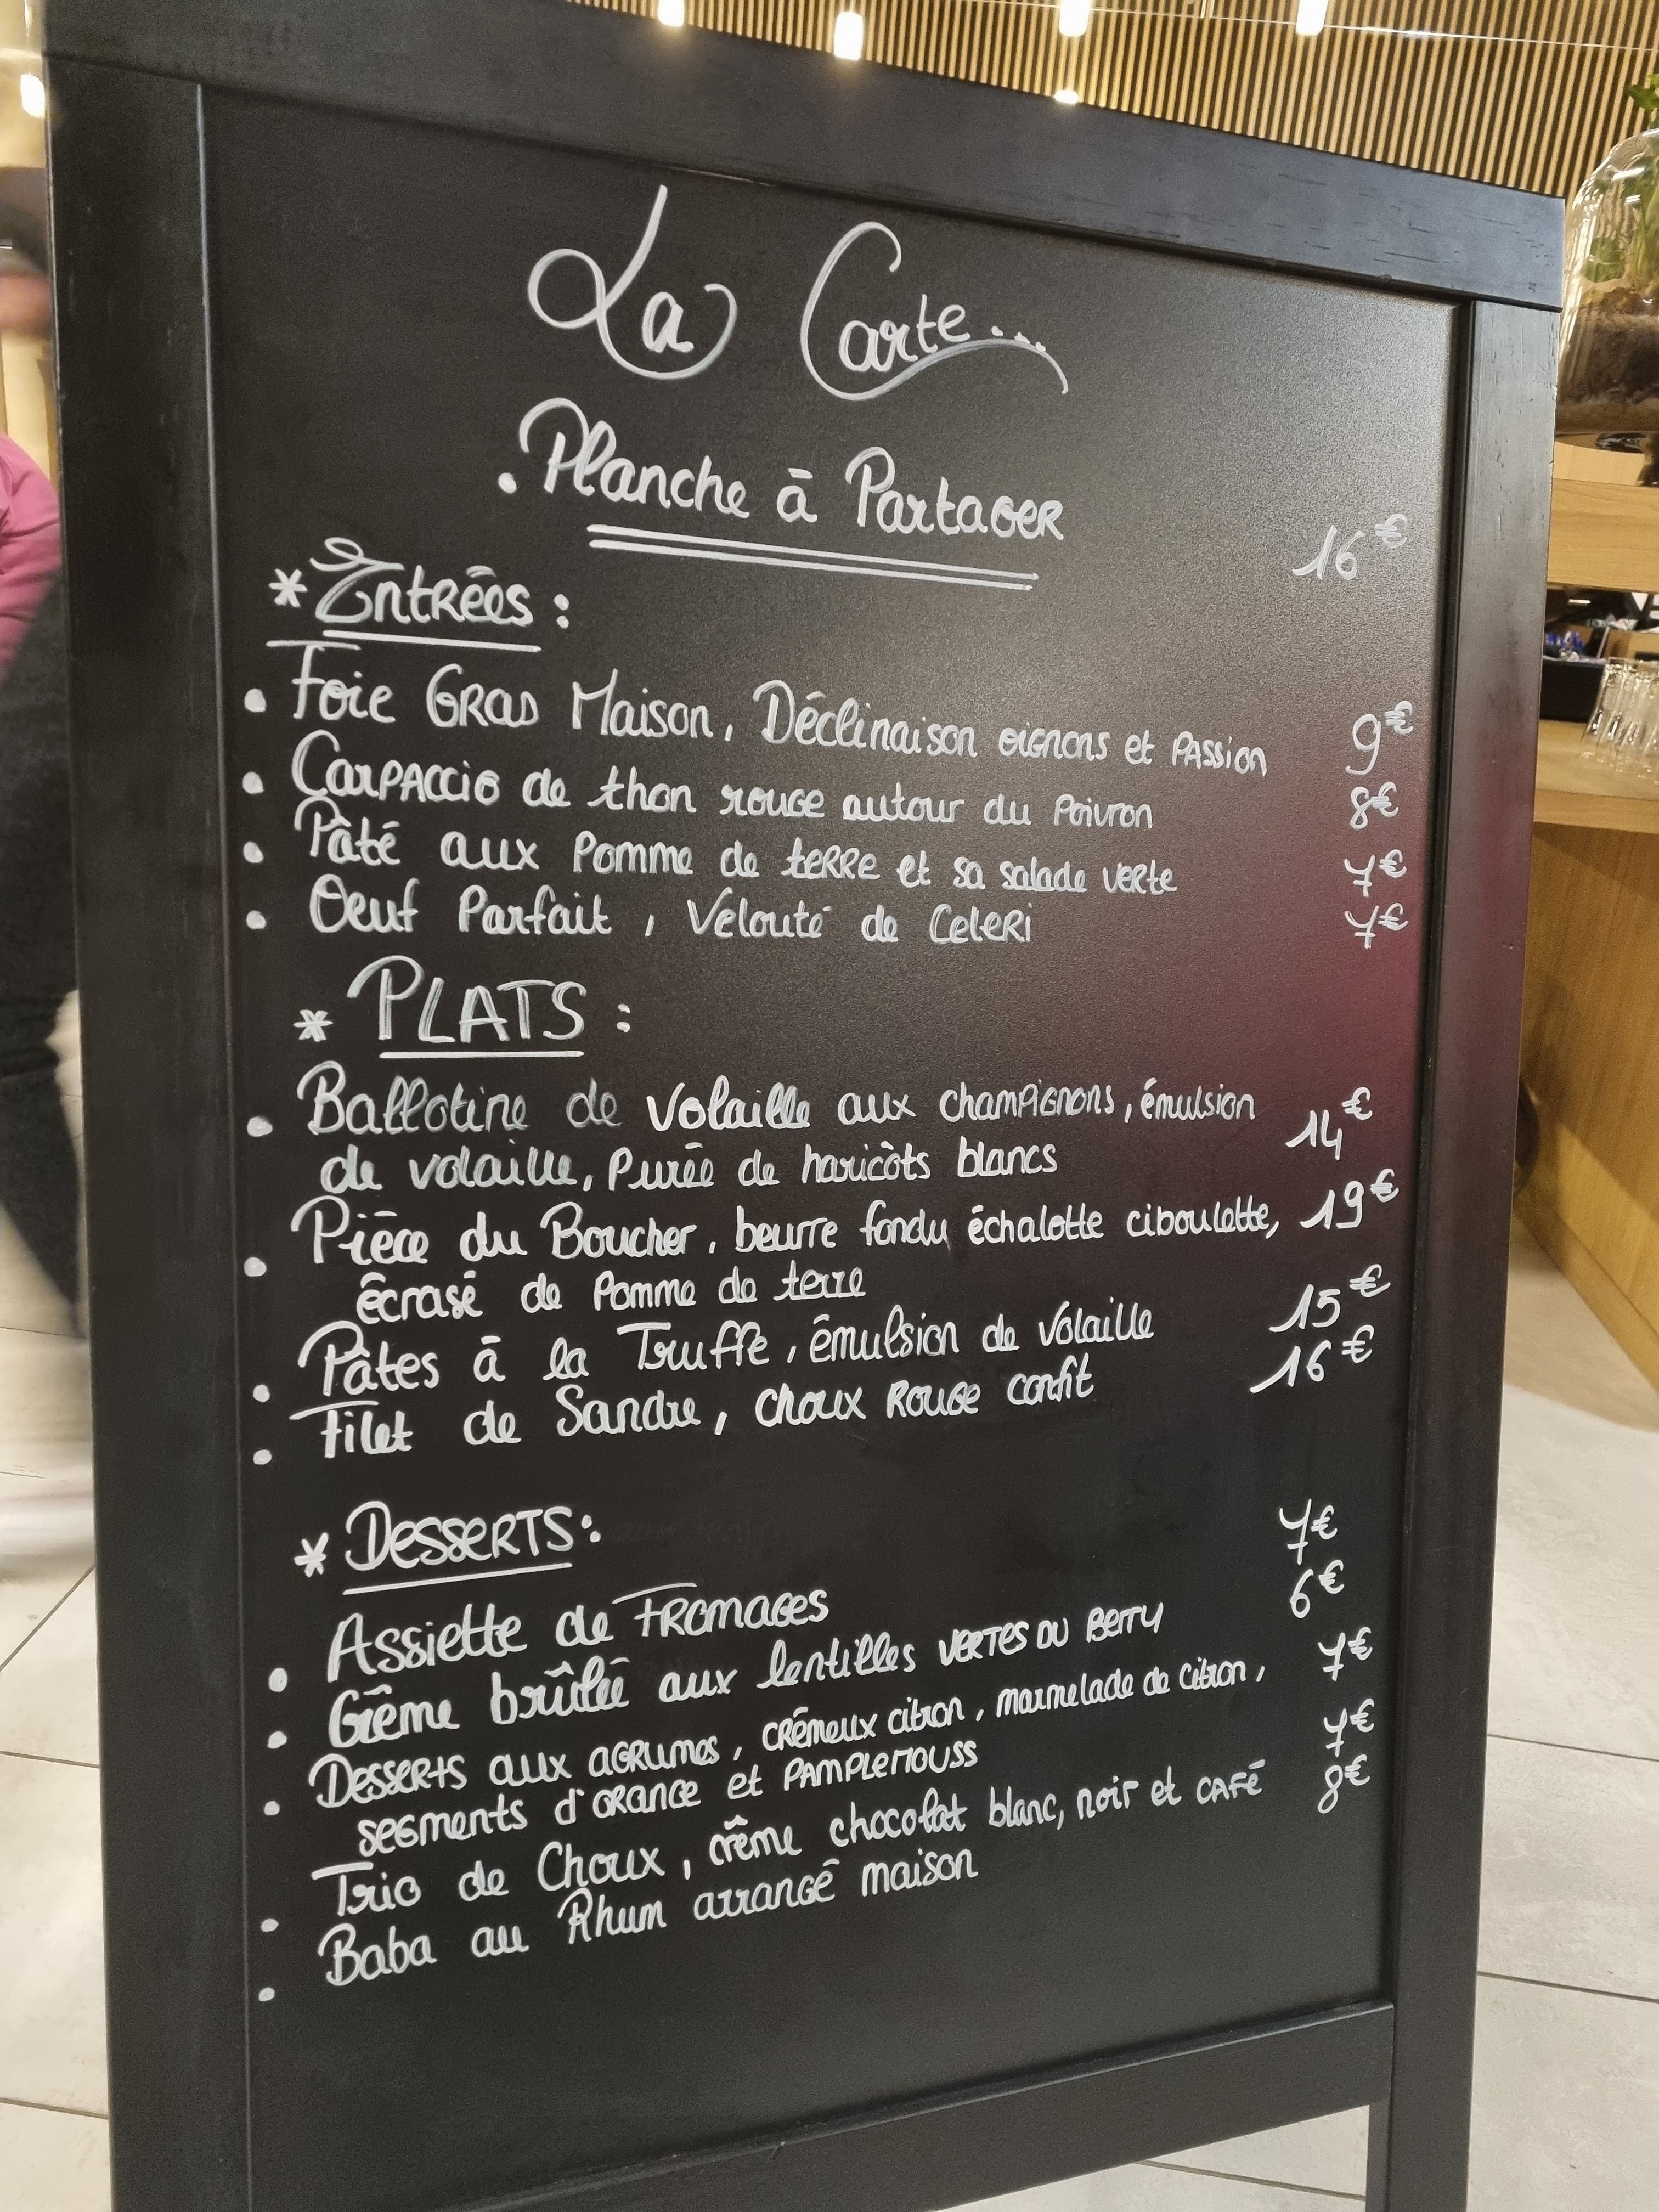 La Carte...
. Planche à Partager 16€
* Entrées :
• Foie Gras Maison, Déclinaison oignons et Passion 9€
• Carpaccio de thon rouge autour du Poivron 8€
• Pâté aux Pomme de terre et sa salade verte 7€
• Oeuf Parfait, Velouté de Celeri 7€
* PLATS :
• Ballotine de Volaille aux champignons, émulsion 14€
de volaille, Purée de haricots blancs
• Pièce du Boucher, beurre fondu échalotte ciboulette, 19€
écrasé de Pomme de terre
• Pâtes à la Truffe, émulsion de Volaille 15€
• Filet de Sandre, choux Rouge confit 16€
* Desserts :
• Assiette de Fromages 7€
• Crème brûlée aux lentilles vertes du Berry 6€
• Desserts aux agrumes, crémeux citron, marmelade de citron, 7€
segments d'orange et Pamplemouss
• Trio de Choux, crème chocolat blanc, noir et café 7€
• Baba au Rhum arrangé maison 8€